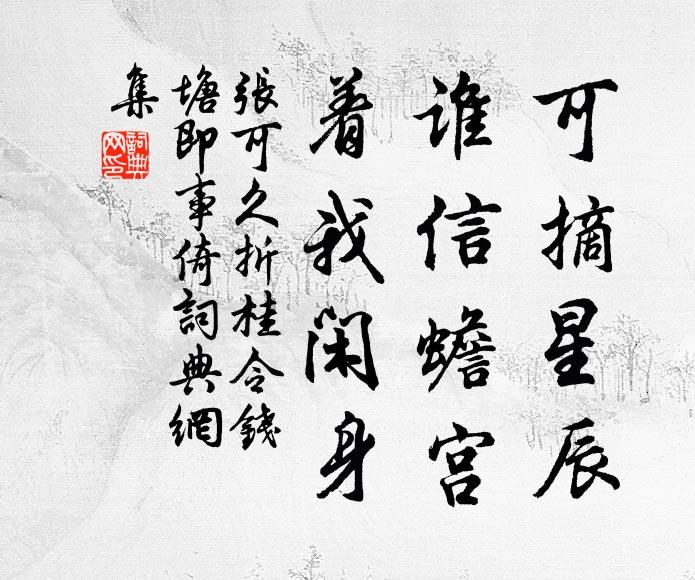 可摘星辰
谁信蟾宫
着我闲身
張可久折桂令錢
塘即事倚詞典網
集
詞典网印